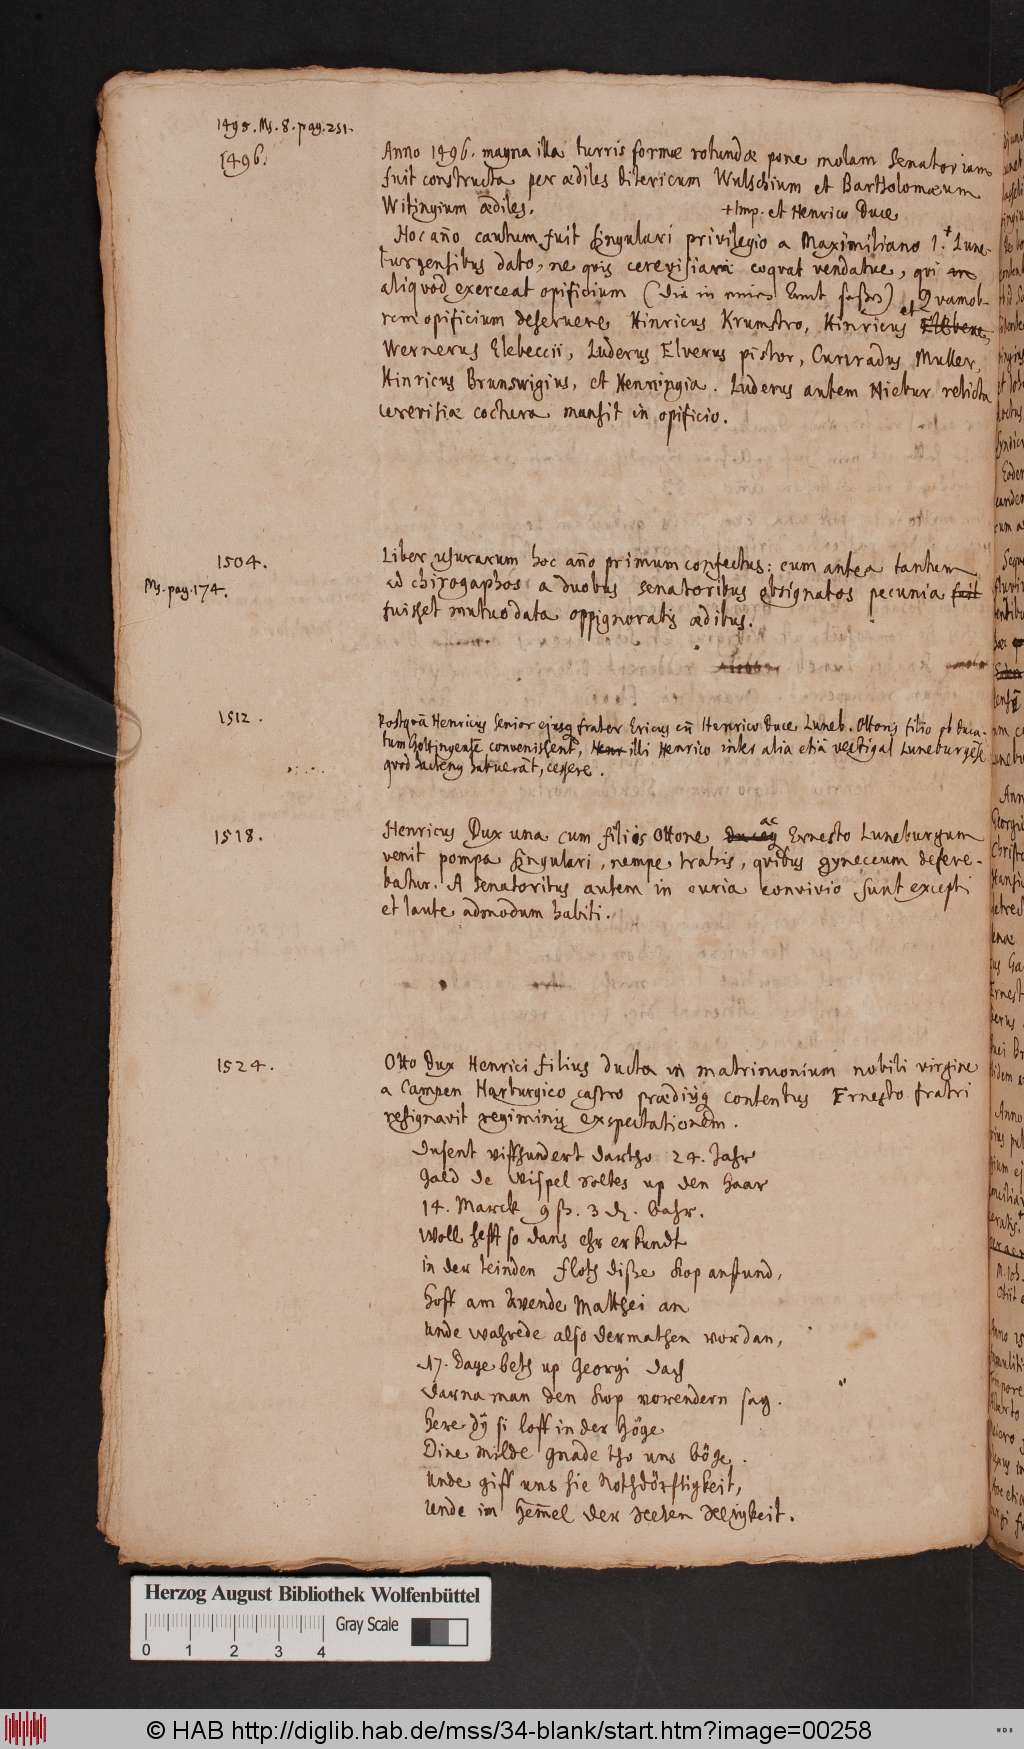 1495. Ms. 8. pag. 251.
1496.
Anno 1496. magna illa turris formæ rotundæ pone molam Senatoriam
fuit constructa per ædiles Ditericum Wulschium et Bartholomæum
Witingium ædiles.
+ Imp. et Henrico Duce
Hoc año cautum fuit singulari privilegio a Maximiliano 1.+ Lune-
burgensibus dato, ne quis cerevisiam coquat vendatve, qui
aliquod exerceat opificium (die in Ampt saßes) Quamob-
rem opificium deseruere Hinricus Krumstro, Hinricus et
Wernerus Elebeccii, Luderus Elverus pistor, Curradus Muller,
Hinricus Brunswigius, et Henningia. Luderus autem Niebur relicta
cerevisiæ coctura mansit in opificio.
1504.
Ms. pag. 174.
Liber usurarum hoc año primum confectus: cum antea tantum
ad chirogaphos a duobus senatoribus obsignatos pecunia fuit
fuisset mutuo data oppignoratis ædibus.
1512.
Postquã Henricus Senior ejusq frater Ericus cũ Henrico Duce Luneb. Ottonis filio ob Duca-
tum Gottingensẽ convenissent, Henr illi Henrico inter alia etiã vectigal Luneburgẽse
quod hactenq habuerãt, cessere.
1518.
Henricus Dux una cum filiis Ottone ac Ernesto Luneburgum
venit pompa singulari, nempe trahis, quibus gynæceum defere-
batur. A Senatoribus autem in curia convivio sunt excepti
et laute admodum habiti.
1524.
Otto Dux Henrici filius ducta in matrimonium nobili virgine
a Campen Harburgico castro prædiisq contentus Ernesto fratri
resignavit regiminis exspectationem.
Dusent viffhundert dartho 24. Jahr
Gald de Wispel soltes up den Haar
14. Marck 9 ß. 3 d. bahr.
Woll hefft so dans ehr erkundt
in der leinden Floth diße Kop anstund,
Hoff am Avende Matthei an
Unde wahrede also dermathen vordan,
17. Dage beth up Georgi dach
Darna man den Kop vorendern sag.
Here dÿ si loff in der Höge
Dine milde gnade tho uns böge.
Unde giff uns hie Nothdörftigkeit,
Unde im Hem̃el der Seelen Seligkeit.
Herzog August Bibliothek Wolfenbüttel
Gray Scale
0 1 2 3 4
© HAB http://diglib.hab.de/mss/34-blank/start.htm?image=00258